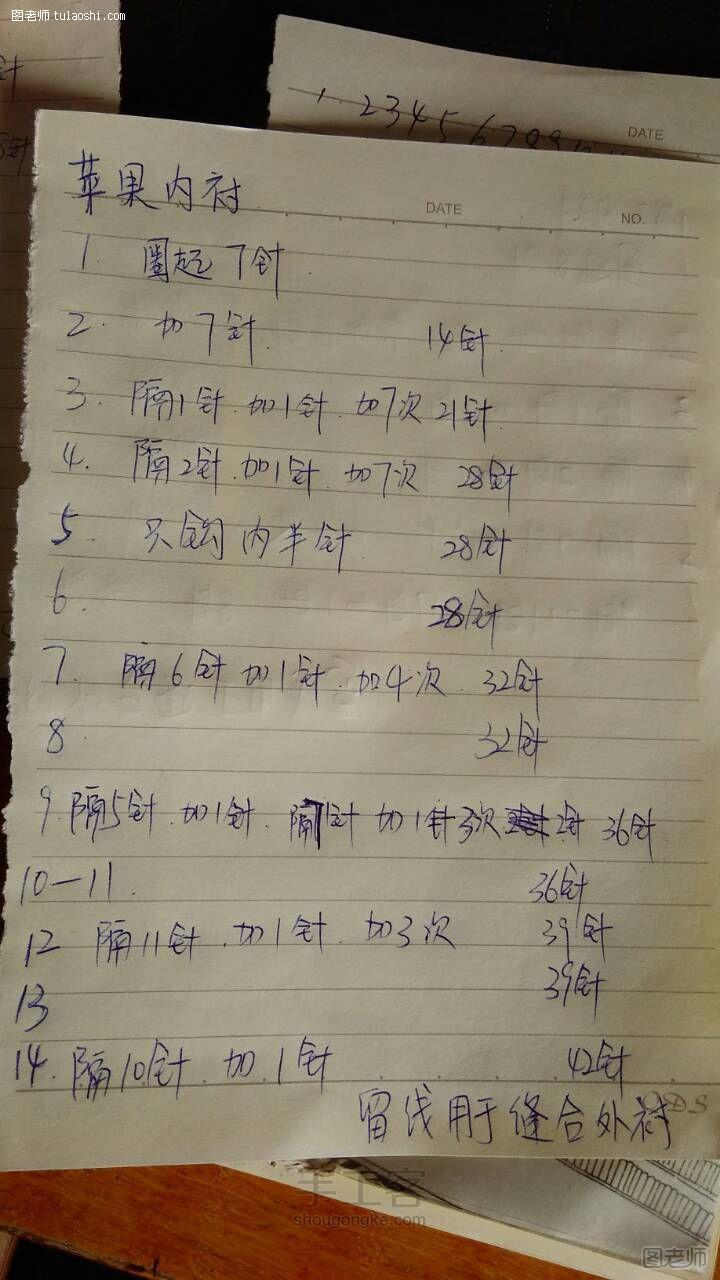 图老师 tulaoshi.com
1. 2 3 4 5 6 7 8 9
DATE
苹果内衬
DATE
NO.
1. 圈起7针
2. 加7针 14针
3. 隔1针.加1针.加7次 21针
4. 隔2针.加1针.加7次 28针
5. 只钩内半针 28针
6. 28针
7. 隔6针加1针.加4次 32针
8 32针
9.隔5针.加1针.隔7针加1针3次 2针 36针
10—11. 36针
12 隔11针.加1针.加3次 39针
13 39针
14.隔10针.加.1针 42针
留线用于缝合外衬
手工客
shougongke.com
图老师